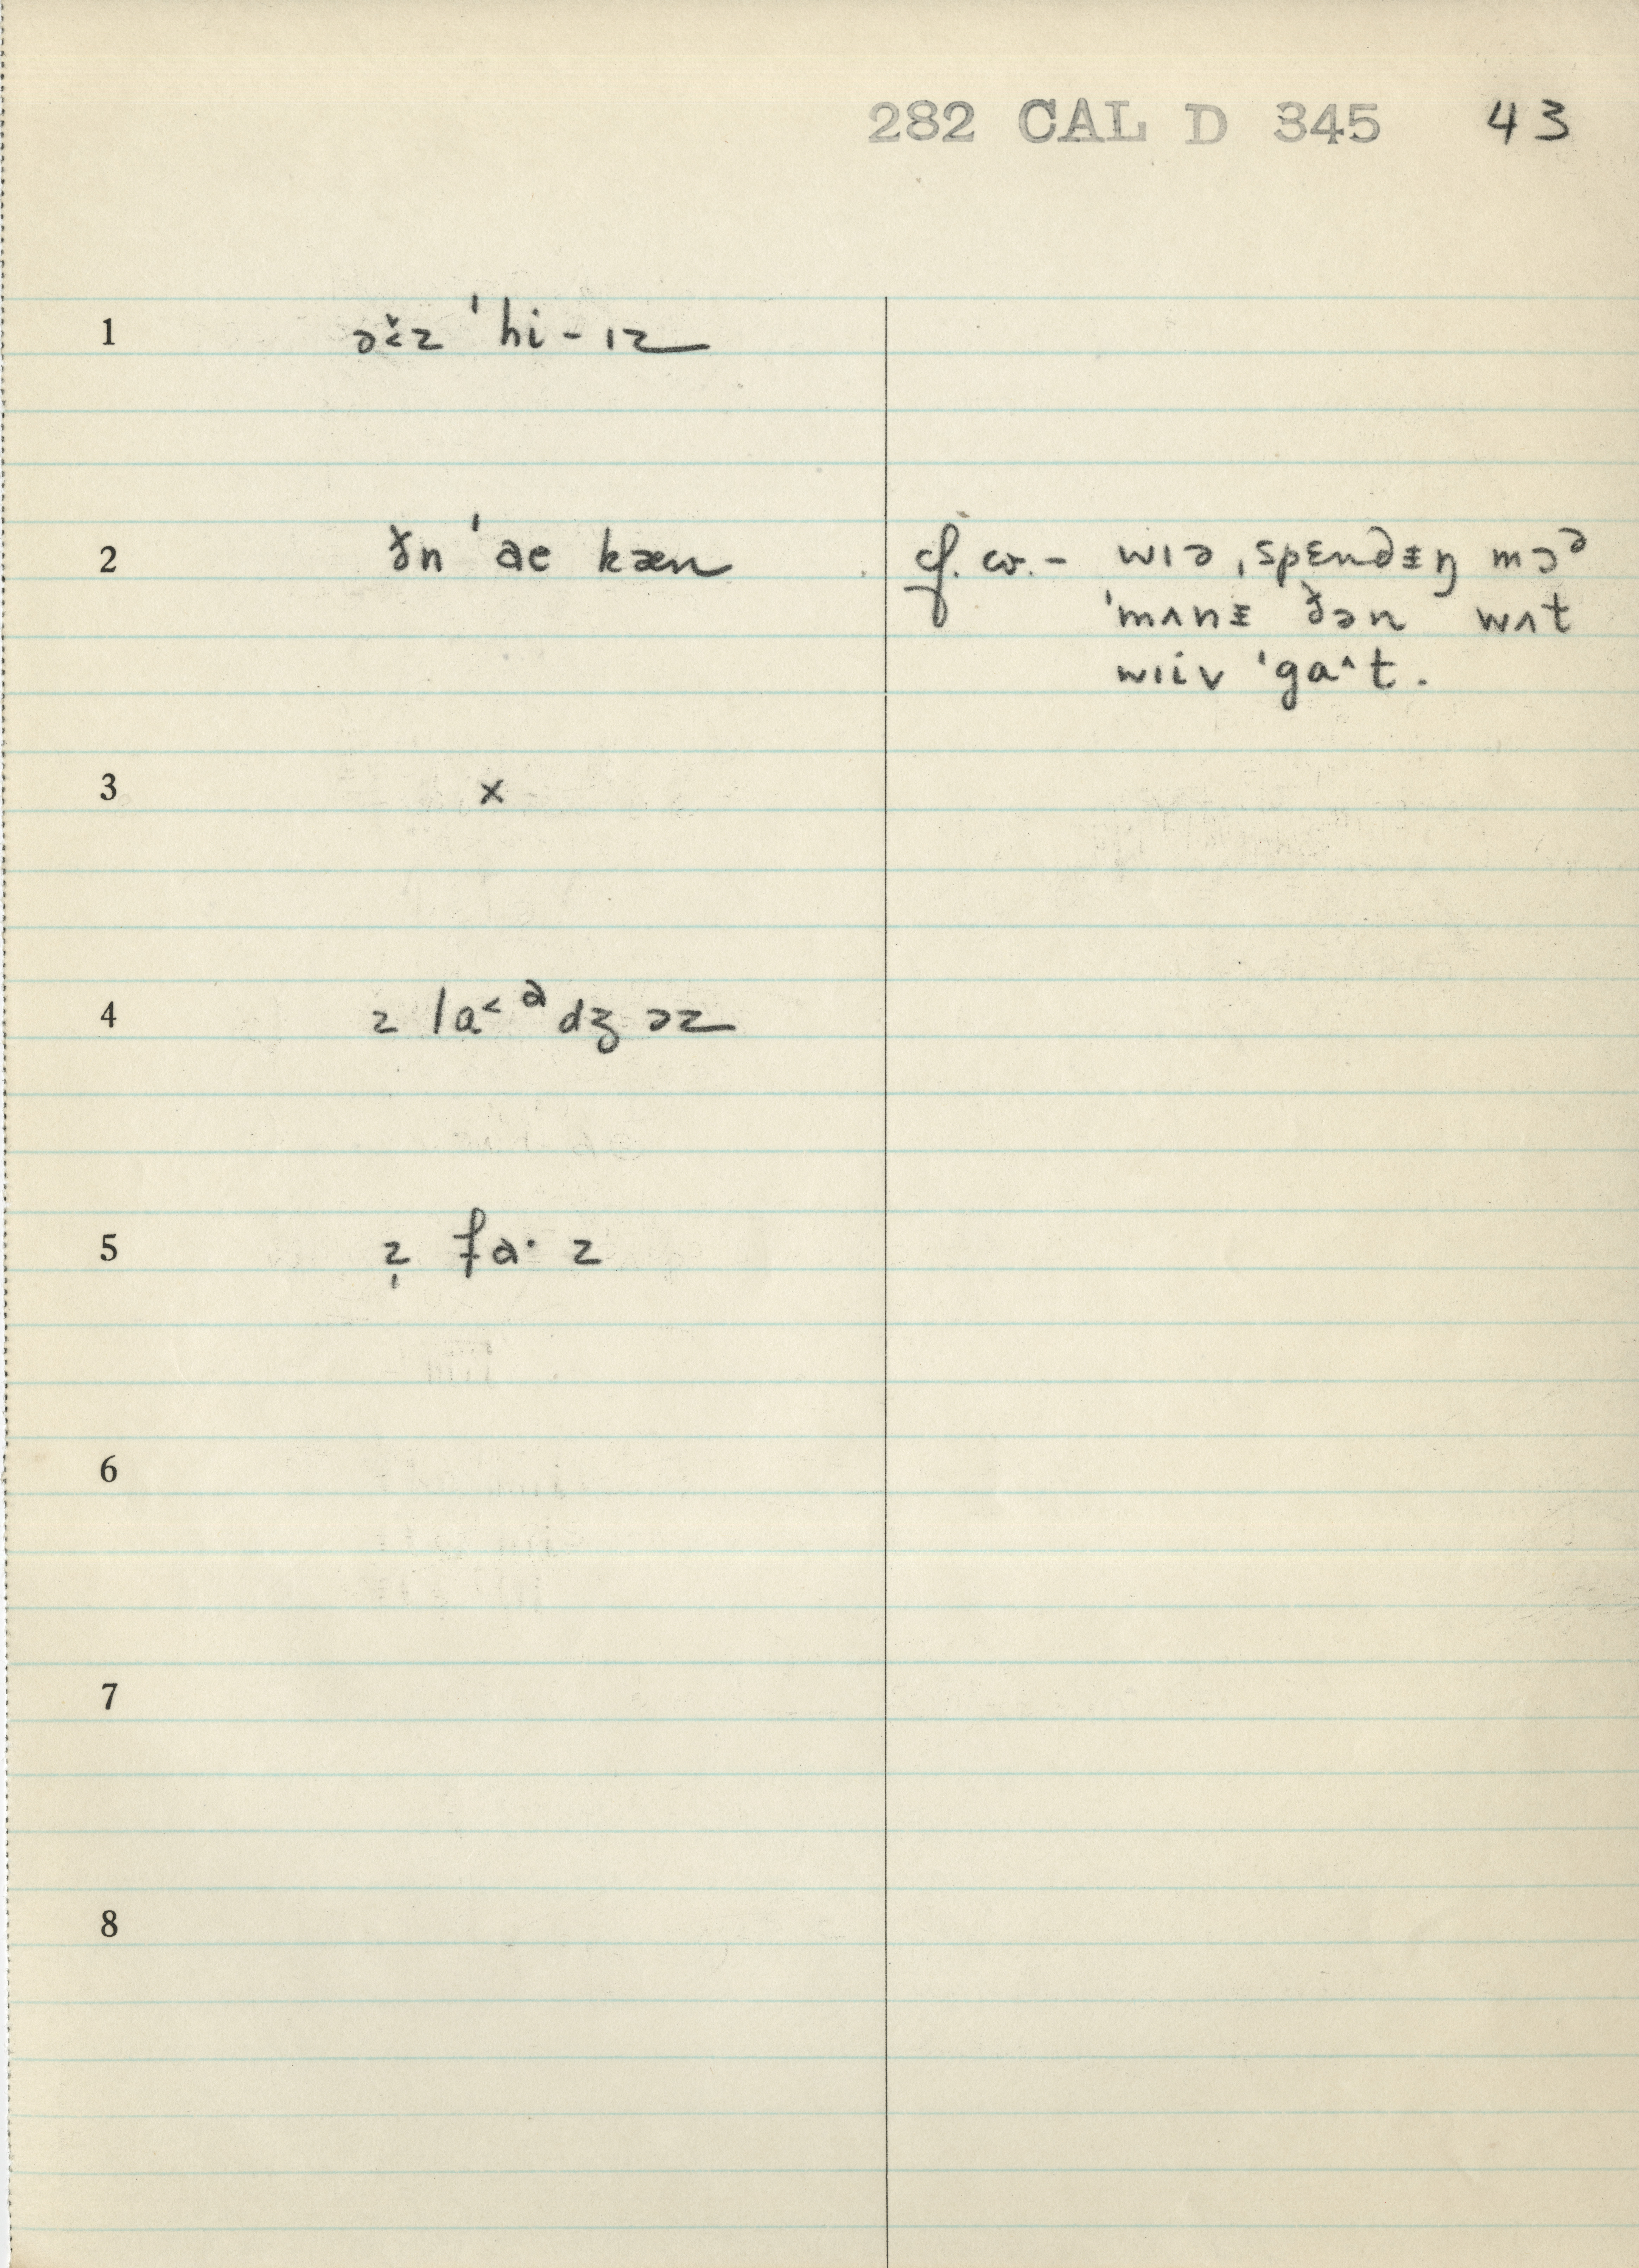 282 CAL D 345 43
1 əɨ̆z ˈhi-ɪz
2 ðn ˈae kæn cf. cv.- wɪə ˌspɛndɪ̵ŋ mɔᵊ
ˈmʌnɪ̵ ðən wʌt
wɪiv ˈga^t.
3 x
4 z la˂ᵊdʒ əz
5 z̩ fa· z
6
7
8